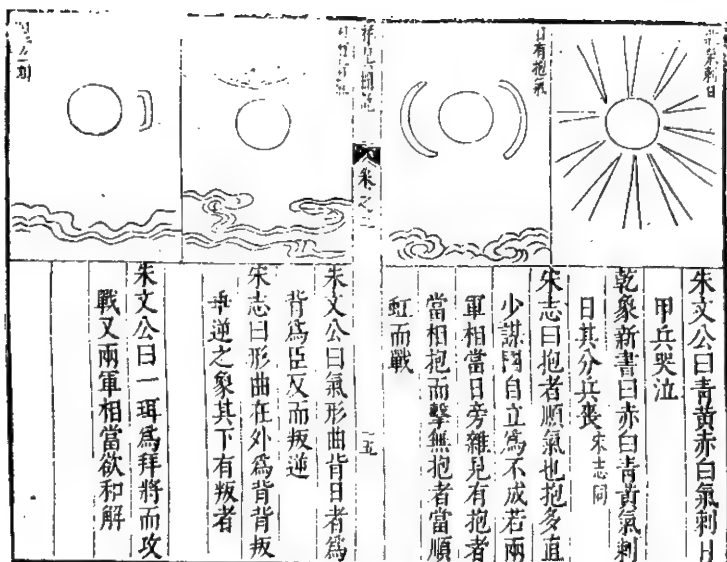 氣刺日
朱文公曰青黃赤白氣刺日
甲兵哭泣
乾象新書曰赤白青黃氣刺
日其分兵喪宋志同
日有抱氣
宋志曰抱者順氣也抱多直
少謀 自立爲不成若兩
軍相當日旁雜見有抱者
當相抱而擊無抱者當順
虹而戰
卷之
五
朱文公曰氣形曲背日者爲
背爲臣反而叛逆
宋志曰形曲在外爲背背叛
乖逆之象其下有叛者
朱文公曰一珥爲拜將而攻
戰又兩軍相當欲和解